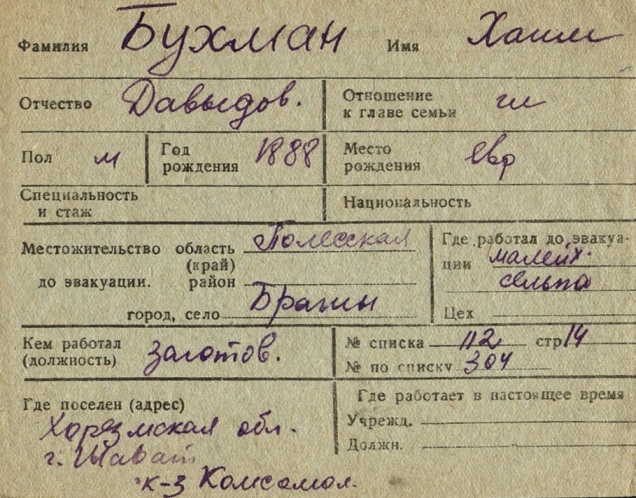 Фамилия Бухман Имя Хаим
Отчество Давыдов. Отношение к главе семьи гл
Пол м Год рождения 1888 Место рождения евр
Специальность и стаж Национальность
Местожительство область Полесская
(край)
до эвакуации. район
город, село Брагин
Где работал до эвакуа-
ции малейк.
сельпо
Цех
Кем работал (должность) заготов.
№ списка 112 стр 14
№ по списку 304
Где поселен (адрес)
Хорезмская обл.
г. Шават
к-з Комсомол.
Где работает в настоящее время
Учрежд.
Должн.